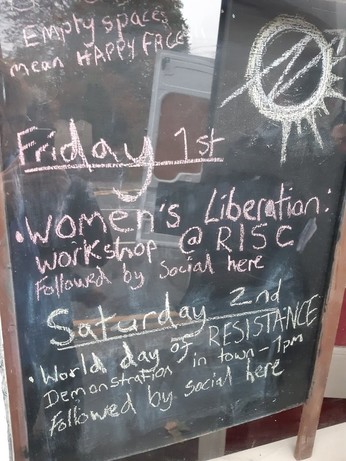 Empty spaces
mean HAPPY FACES
Friday 1st
• Women's Liberation:
Workshop @ RISC
Followed by Social here
Saturday 2nd
• World day of RESISTANCE
Demonstration in town - 1pm
Followed by Social here